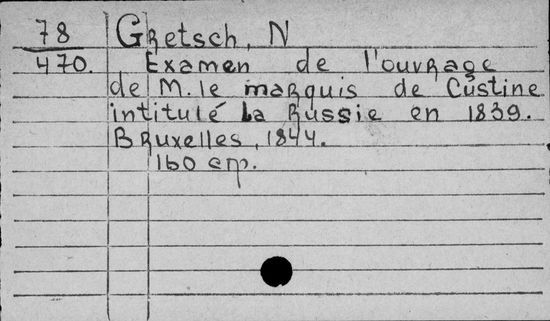 78 Gretsch, N
470. Examen de l'ouvrage
de M. le marquis de Custine
intitulé La Russie en 1839.
Bruxelles, 1844.
160 стр.